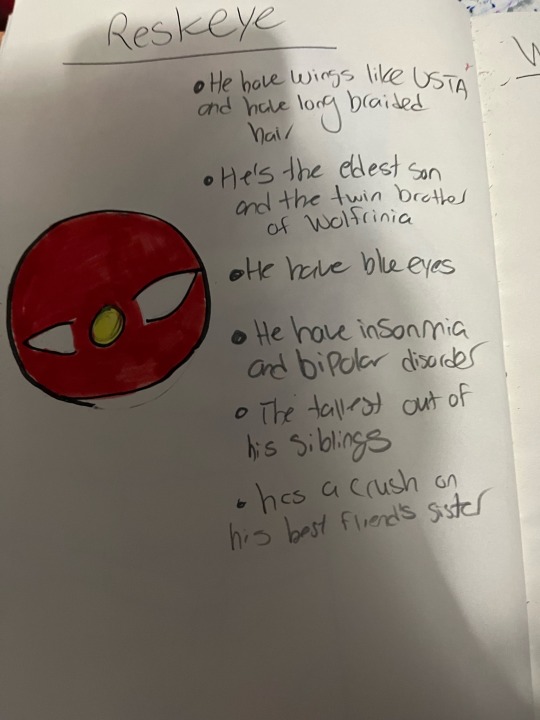 Reskeye
• He have wings like USTA
and have long braided
hair
• He's the eldest son
and the twin brother
of Wolfrinia
• He have blue eyes
• He have insonmia
and bipolar disorder
• The tallest out of
his siblings
• has a crush on
his best friend's sister
W